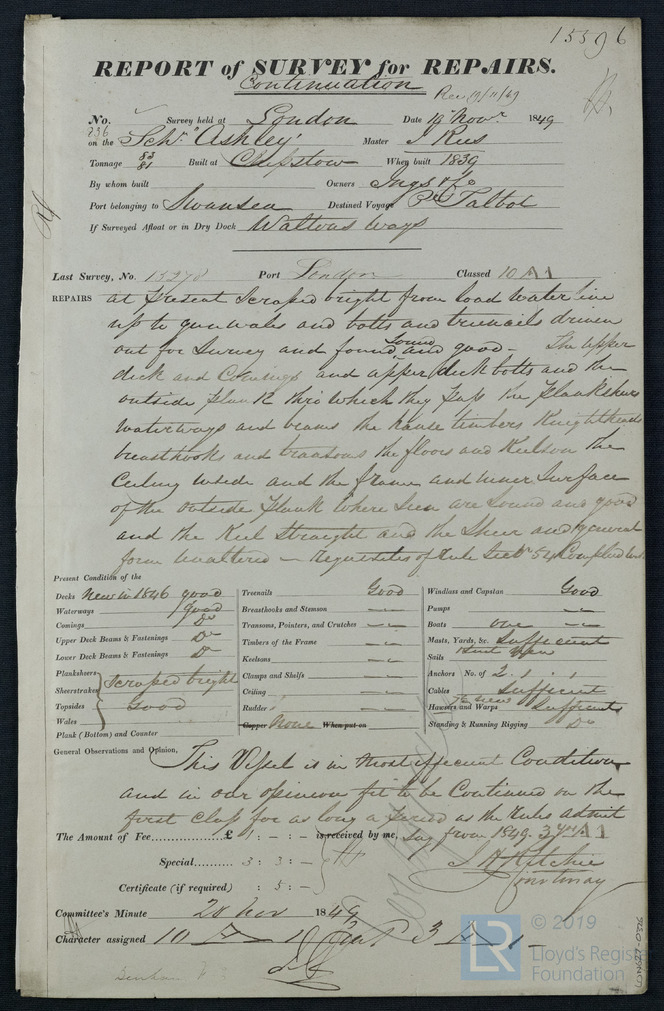 15596
REPORT of SURVEY for REPAIRS.
Continuation
Rec 19/11/49
No. 236 Survey held at London Date 19 Novr 1849
on the Schr "Ashley" Master J Rees
Tonnage 83 81 Built at Chepstow When built 1839
By whom built Owners & Co
Port belonging to Swansea Destined Voyage Pt Talbot
If Surveyed Afloat or in Dry Dock Waltons Ways
Last Survey, No. 15278 Port London Classed 10 A1
REPAIRS at present scraped bright from load water line
up to gunwales and bolts and treenails driven
out for Survey and found sound and good - The upper
deck and Comings and upper deck bolts and the
outside plank thro which they pass the Planksheers
waterways and beams the hause timbers Knightheads
breasthooks and transoms the floors and Keelson the
Ceiling inside and the frame and inner surface
of the outside plank where seen are sound and good
and the Keel straight and the Sheer and general
form unaltered - Requisites of Rule Sectn 54 Complied with
Present Condition of the
Decks New in 1846 good Treenails Good Windlass and Capstan Good
Waterways good Breasthooks and Stemson — Pumps —
Comings Do Transoms, Pointers, and Crutches — Boats one —
Upper Deck Beams & Fastenings Do Timbers of the Frame — Masts, Yards, &c. Sufficient
Lower Deck Beams & Fastenings Do Keelsons — Sails
Planksheers Clamps and Shelfs — Anchors No. of 2. 1. 1.
Sheerstrakes scraped bright Ceiling — Cables Sufficient
Topsides Good Rudder — Hawsers and Warps Sufficient
Wales Copper None When put on Standing & Running Rigging Do
Plank (Bottom) and Counter
General Observations and Opinion, This Vessel is in most efficient Condition
and in our opinion fit to be Continued on the
first Class for as long a period as the Rules admit
The Amount of Fee............£ 1 : - : - is received by me, say from 1849 3 yrs A1
Special.......... 3 : 3 : - J H Ritchie
Certificate (if required) : 5 : - Courtenay
Committee's Minute 20 Nov 1849
Character assigned 10 A 1 Cont 3 A 1 -
© 2019
LR
Lloyd's Register
Foundation